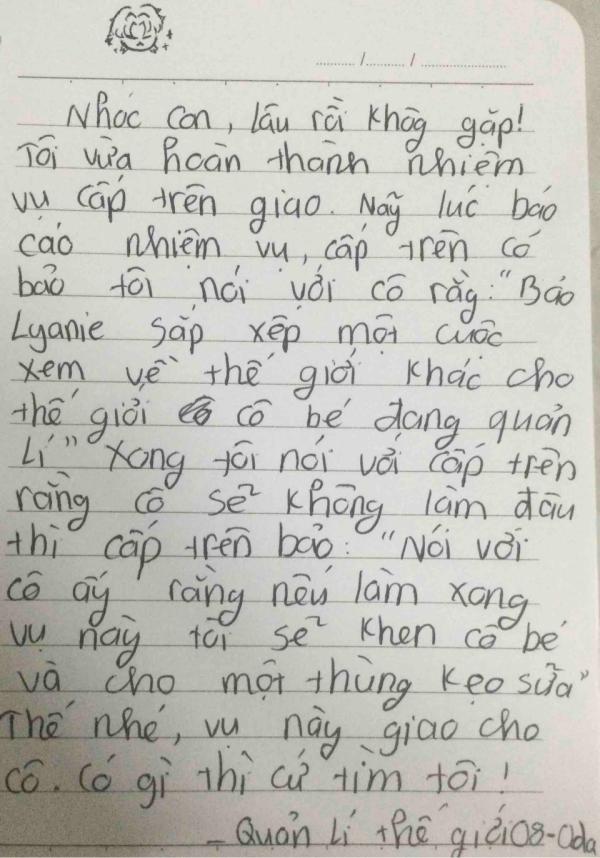 ....../....../............
Nhóc con, lâu rồi khôg gặp!
Tôi vừa hoàn thành nhiệm
vụ cấp trên giao. Nãy lúc báo
cáo nhiệm vụ, cấp trên có
bảo tôi nói với cô rằg: "Bảo
Lyanie sắp xếp một cuộc
xem về thế giới khác cho
thế giới cô bé đang quản
lí" Xong tôi nói với cấp trên
rằng cô sẽ không làm đâu
thì cấp trên bảo: "Nói với
cô ấy rằng nếu làm xong
vụ này tôi sẽ khen cô bé
và cho một thùng kẹo sữa"
Thế nhé, vụ này giao cho
cô. Có gì thì cứ tìm tôi!
- Quản lí thế giới 08-Oda